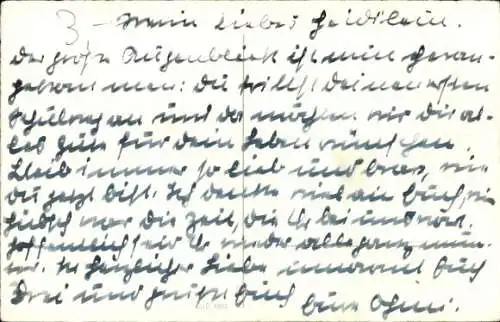 Mein liebes Heidilein.
Der große Augenblick ist nun heran-
gekommen: Du trittst Deinen ersten
Schulweg an und da möchten wir Dir al-
les Gute für Dein Leben wünschen.
Bleib immer so lieb und brav, wie
Du jetzt bist. Ich denke viel an Euch, wie
hübsch war die Zeit, die Ihr bei uns wart.
Hoffentlich seid Ihr wieder alle ganz mun-
ter. In herzlicher Liebe umarmt Euch
Drei und grüßt Euch
Eure Omi.